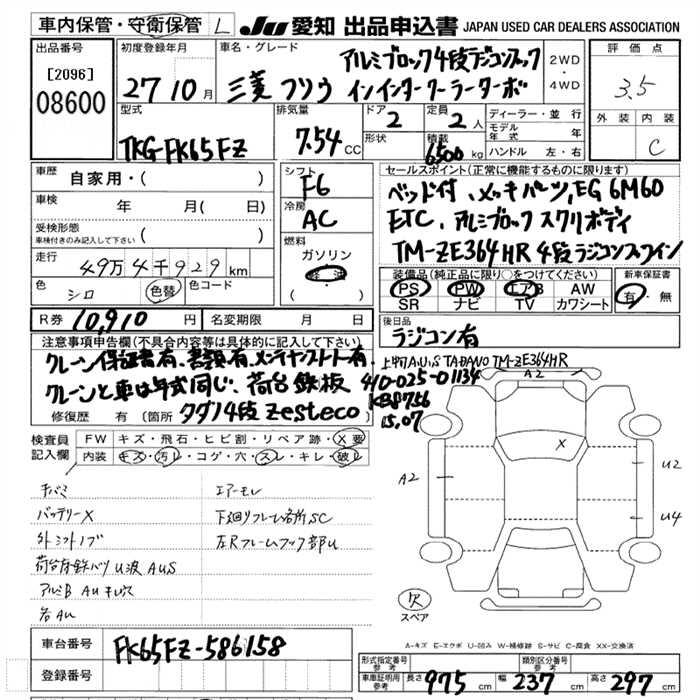 車内保管・守衛保管 L JU 愛知 出品申込書 JAPAN USED CAR DEALERS ASSOCIATION
出品番号
[2096]
08600
初度登録年月
27 10 月
車名・グレード
アルミブロック4段ラジコンフック
三菱 フソウ インタークーラーターボ
2WD
・
4WD
評価点
3.5
外装 内装
C
型式
TKG-FK65FZ
排気量
7.54 CC
ドア
2
形状
定員
2 人
積載
6500 kg
ディーラー・並行
モデル年式 年
ハンドル 左・右
車歴
自家用・( )
車検
年 月( 日)
受検形態
車検付きのみ記入して下さい ( )
走行
49万4千929 km
色
シロ
色替
色コード
シフト
F6
冷房
AC
燃料
ガソリン
( )
セールスポイント(正常に機能するものに限ります)
ベッド付、メッキパーツ,EG 6M60
ETC、アルミブロック スクリボディ
TM-ZE364HR 4段ラジコンスフイン
装備品(純正品に限り○をつけてください)
PS PW エアB AW
SR ナビ TV カワシート
新車保証書
有・無
R券 10,910 円
名変期限 月 日
後日品
ラジコン有
注意事項申告欄(不具合内容等は具体的に記入して下さい)
クレーン保証書有、書類有、メンテナンスノート有、
クレーンと車は年式同じ、荷台鉄板
修復歴 有 (箇所 タダノ4段 zesteco
上物A.U.S TADANO TM-ZE364HR
410-025-01134
KB8756
15.07
検査員記入欄
FW キズ・飛石・ヒビ割・リペア跡・X要
内装 キズ・汚レ・コゲ・穴・スレ・キレ・破レ
バッテリーX
エアーモレ
下廻りフレーム各所SC
左RフレームフックU
荷台床鉄バリU波AUS
各AU
A2
A2
X
U2
U4
欠
スペア
A-キズ E-エクボ U-凹み W-補修跡 S-サビ C-腐食 XX-交換済
車台番号
FK65FZ-586158
登録番号
形式指定番号
参考
類別区分番号
参考
車庫証明用
参考
長さ 975 cm 幅 237 cm 高さ 297 cm